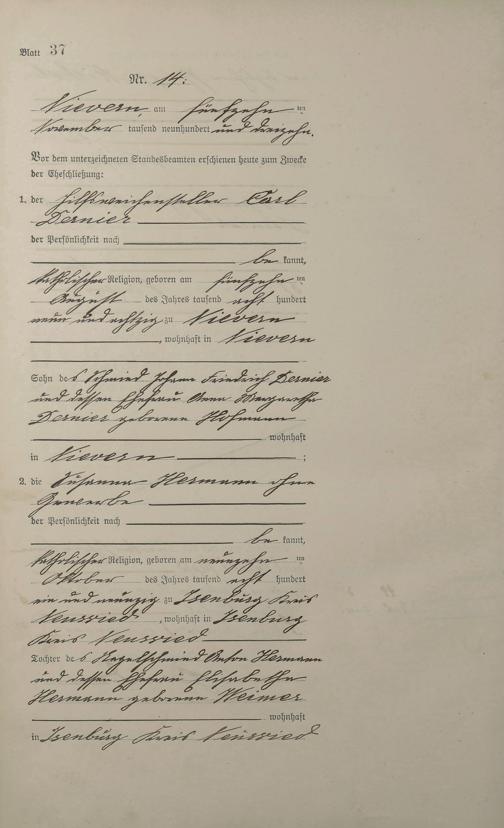 Blatt 37
Nr. 14.
Nievern, am fünfzehn ten
November tausend neunhundert und dreizehn.
Vor dem unterzeichneten Standesbeamten erschienen heute zum Zwecke
der Eheschließung:
1. der Hilfsweichensteller Carl
Dernier
der Persönlichkeit nach
be kannt,
katholischer Religion, geboren am fünfzehn ten
August des Jahres tausend acht hundert
neun und achtzig zu Nievern
, wohnhaft in Nievern
Sohn des Schmied Johann Friedrich Dernier
und dessen Ehefrau Anna Margaretha
Dernier geborene Hofmann
wohnhaft
in Nievern ;
2. die Susanna Hermann ohne
Gewerbe
der Persönlichkeit nach
be kannt,
katholischer Religion, geboren am neunzehn ten
Oktober des Jahres tausend acht hundert
ein und neunzig zu Isenburg Kreis
Neuwied, wohnhaft in Isenburg
Kreis Neuwied
Tochter des Nagelschmied Anton Hermann
und dessen Ehefrau Elisabetha
Hermann geborene Weimer
wohnhaft
in Isenburg Kreis Neuwied